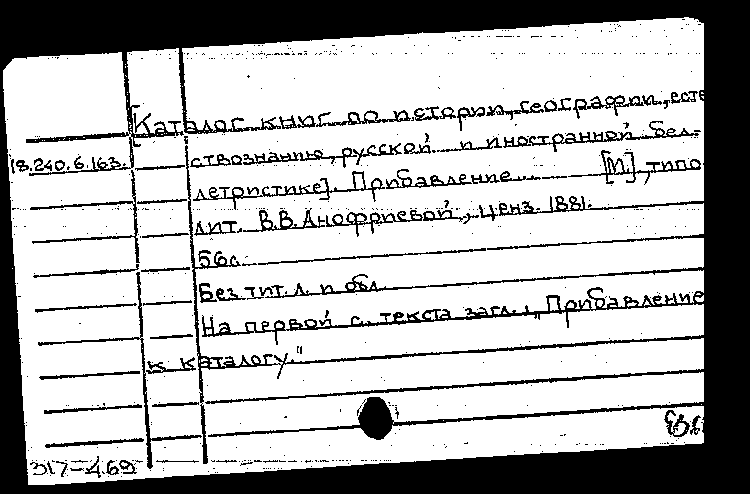 [Каталог книг по истории, географии, есте
18.240.6.163.
ствознанию, русской и иностранной бел-
летристике]. Прибавление... [М.], типо
лит. В.В. Анофриевой, ценз. 1881.
56с.
Без тит. л. и обл.
На первой с. текста загл.: „Прибавление
к каталогу."
317-469